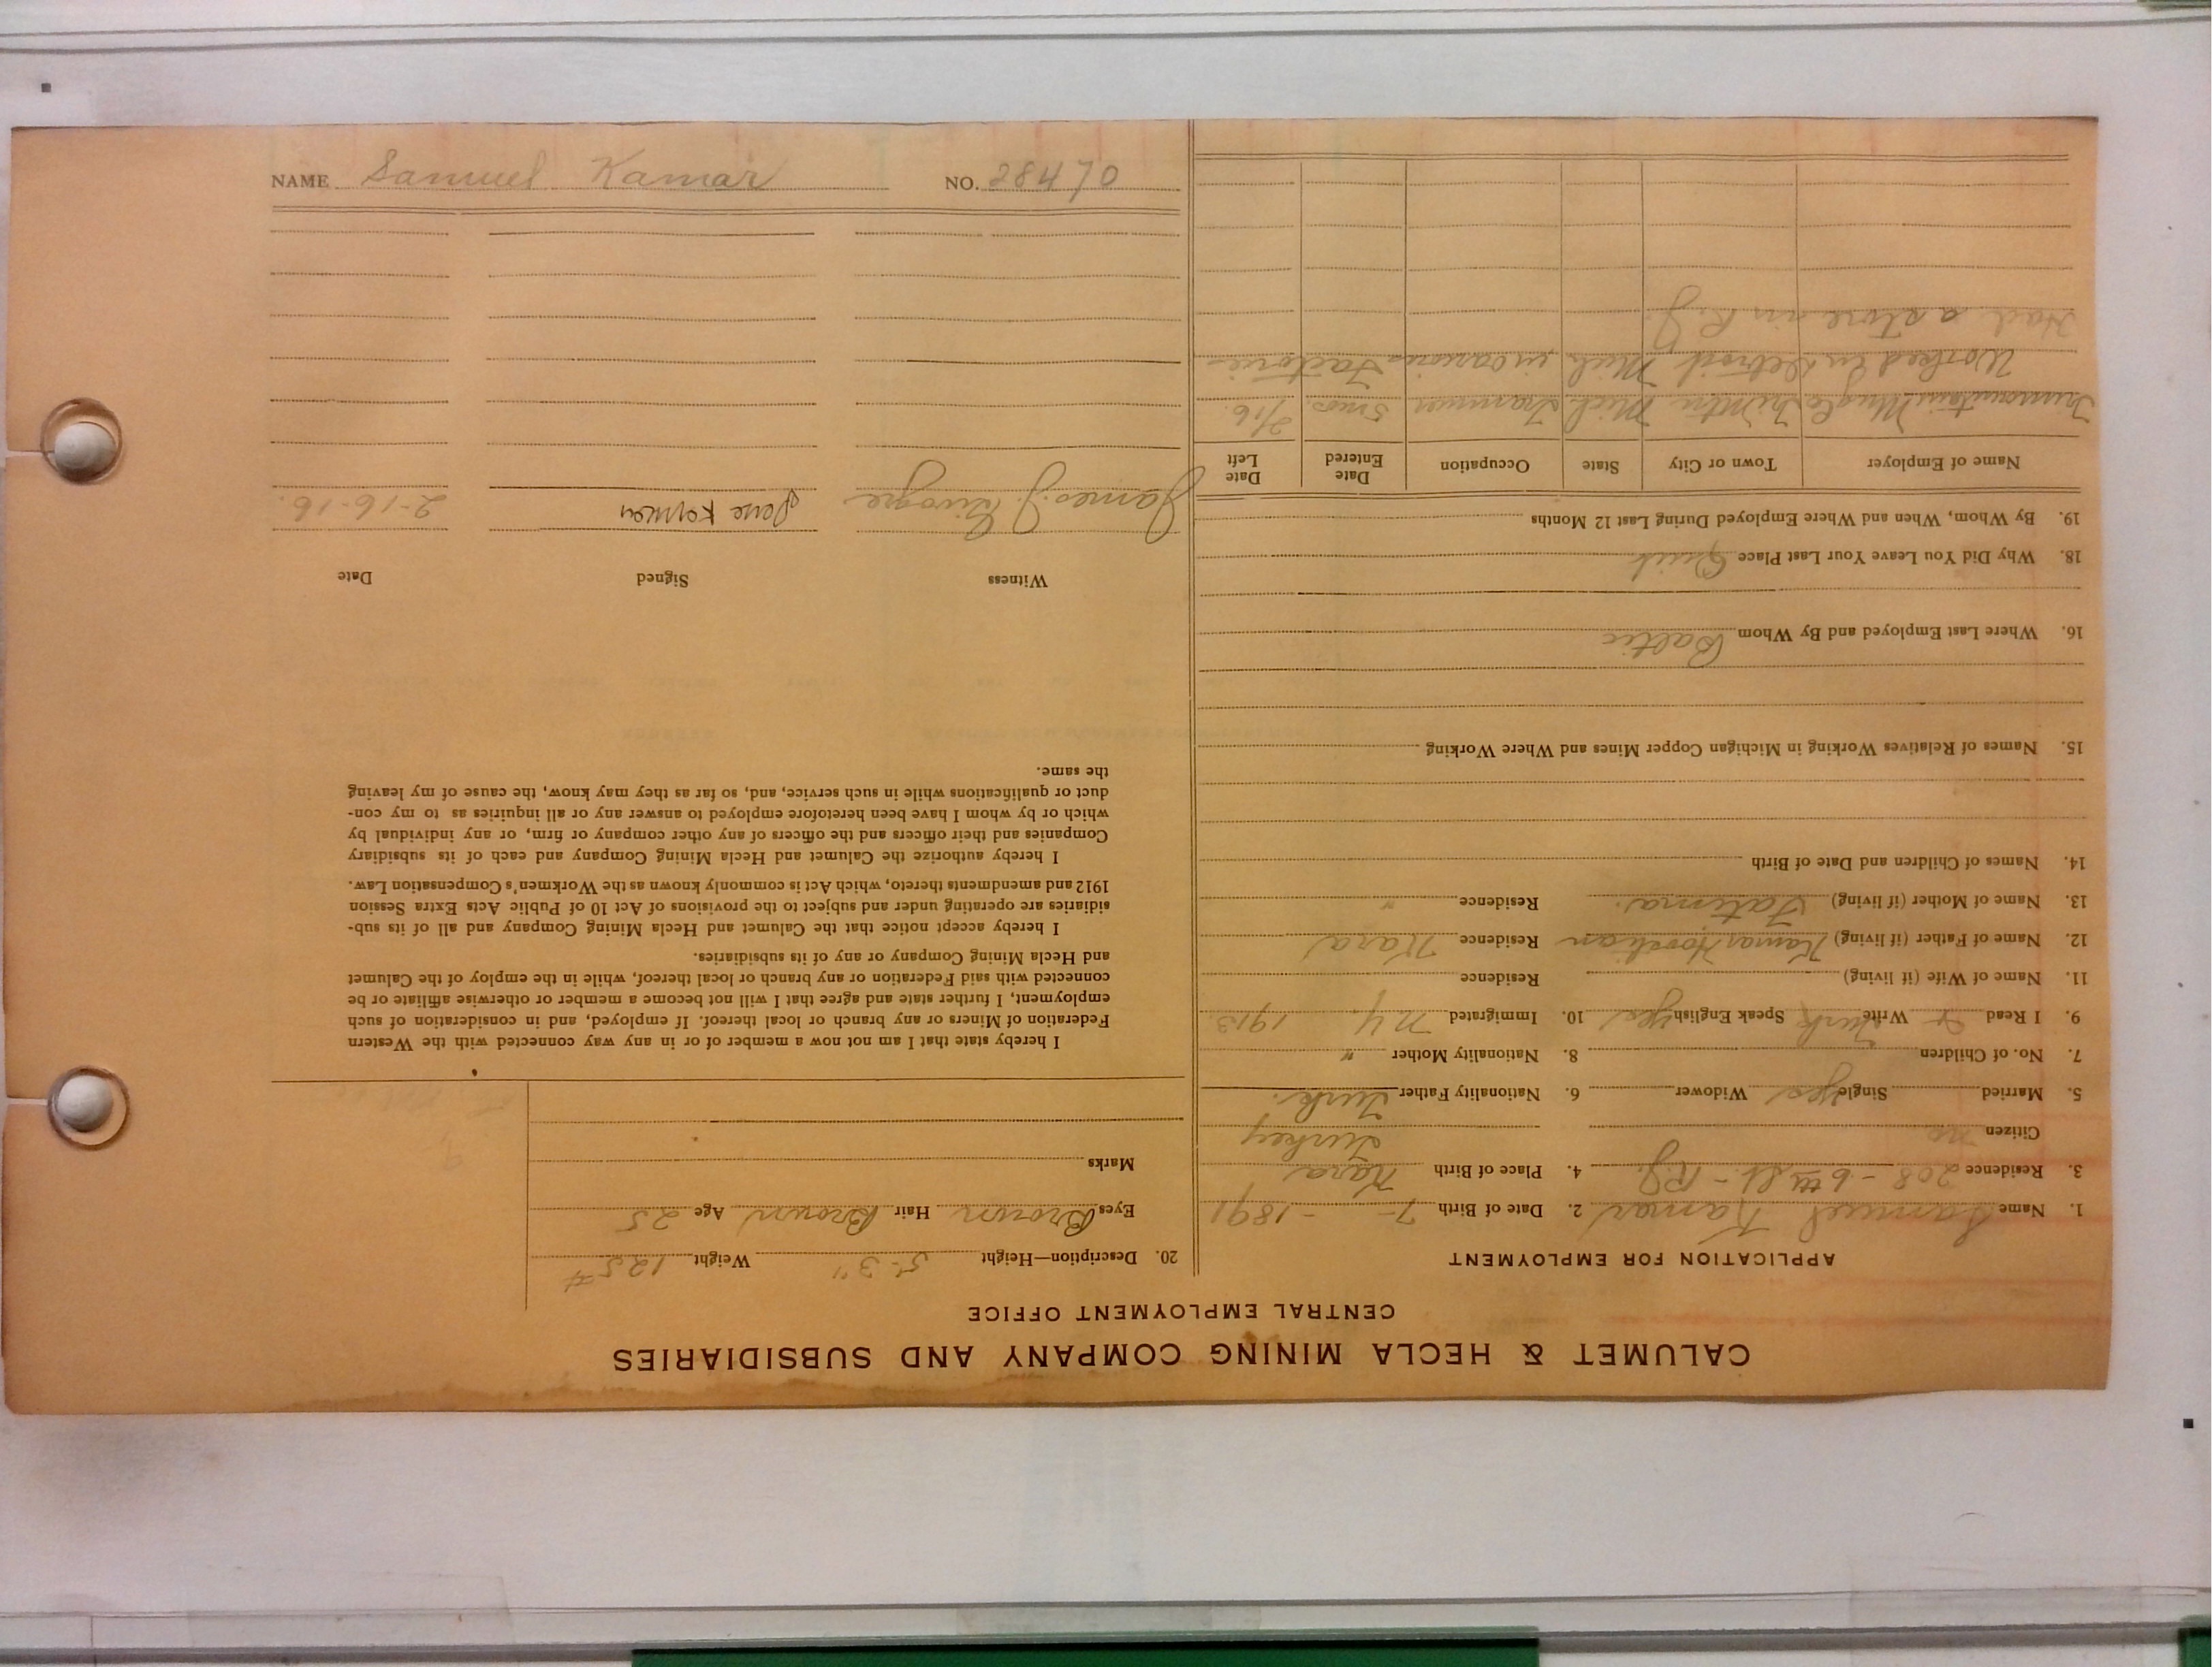 CALUMET & HECLA MINING COMPANY AND SUBSIDIARIES
CENTRAL EMPLOYMENT OFFICE
APPLICATION FOR EMPLOYMENT
1. Name Samuel Kamar 2. Date of Birth 7- -1891
3. Residence 208 - 6th St. - R.J. 4. Place of Birth Kara
Citizen no Turkey
5. Married Single yes Widower 6. Nationality Father Turk.
7. No. of Children 8. Nationality Mother "
9. I Read & Write Turk Speak English yes 10. Immigrated N.Y. 1913
11. Name of Wife (if living) Residence
12. Name of Father (if living) Kamar Residence Kara
13. Name of Mother (if living) Fatima. Residence "
14. Names of Children and Date of Birth
15. Names of Relatives Working in Michigan Copper Mines and Where Working
16. Where Last Employed and By Whom Baltic
18. Why Did You Leave Your Last Place Quit
19. By Whom, When and Where Employed During Last 12 Months
Name of Employer Town or City State Occupation Date Entered Date Left
Trimountain Mich Trammer 5 mos. 2/16.
Worked in Detroit Mich in various Factories
Had a store in R.J.
20. Description—Height 5'-3" Weight 125#
Eyes Brown Hair Brown Age 25
Marks
I hereby state that I am not now a member of or in any way connected with the Western
Federation of Miners or any branch or local thereof. If employed, and in consideration of such
employment, I further state and agree that I will not become a member or otherwise affiliate or be
connected with said Federation or any branch or local thereof, while in the employ of the Calumet
and Hecla Mining Company or any of its subsidiaries.
I hereby accept notice that the Calumet and Hecla Mining Company and all of its sub-
sidiaries are operating under and subject to the provisions of Act 10 of Public Acts Extra Session
1912 and amendments thereto, which Act is commonly known as the Workmen's Compensation Law.
I hereby authorize the Calumet and Hecla Mining Company and each of its subsidiary
Companies and their officers and the officers of any other company or firm, or any individual by
which or by whom I have been heretofore employed to answer any or all inquiries as to my con-
duct or qualifications while in such service, and, so far as they may know, the cause of my leaving
the same.
Witness Signed Date
James J. 2-16-16.
NAME Samuel Kamar NO. 28470